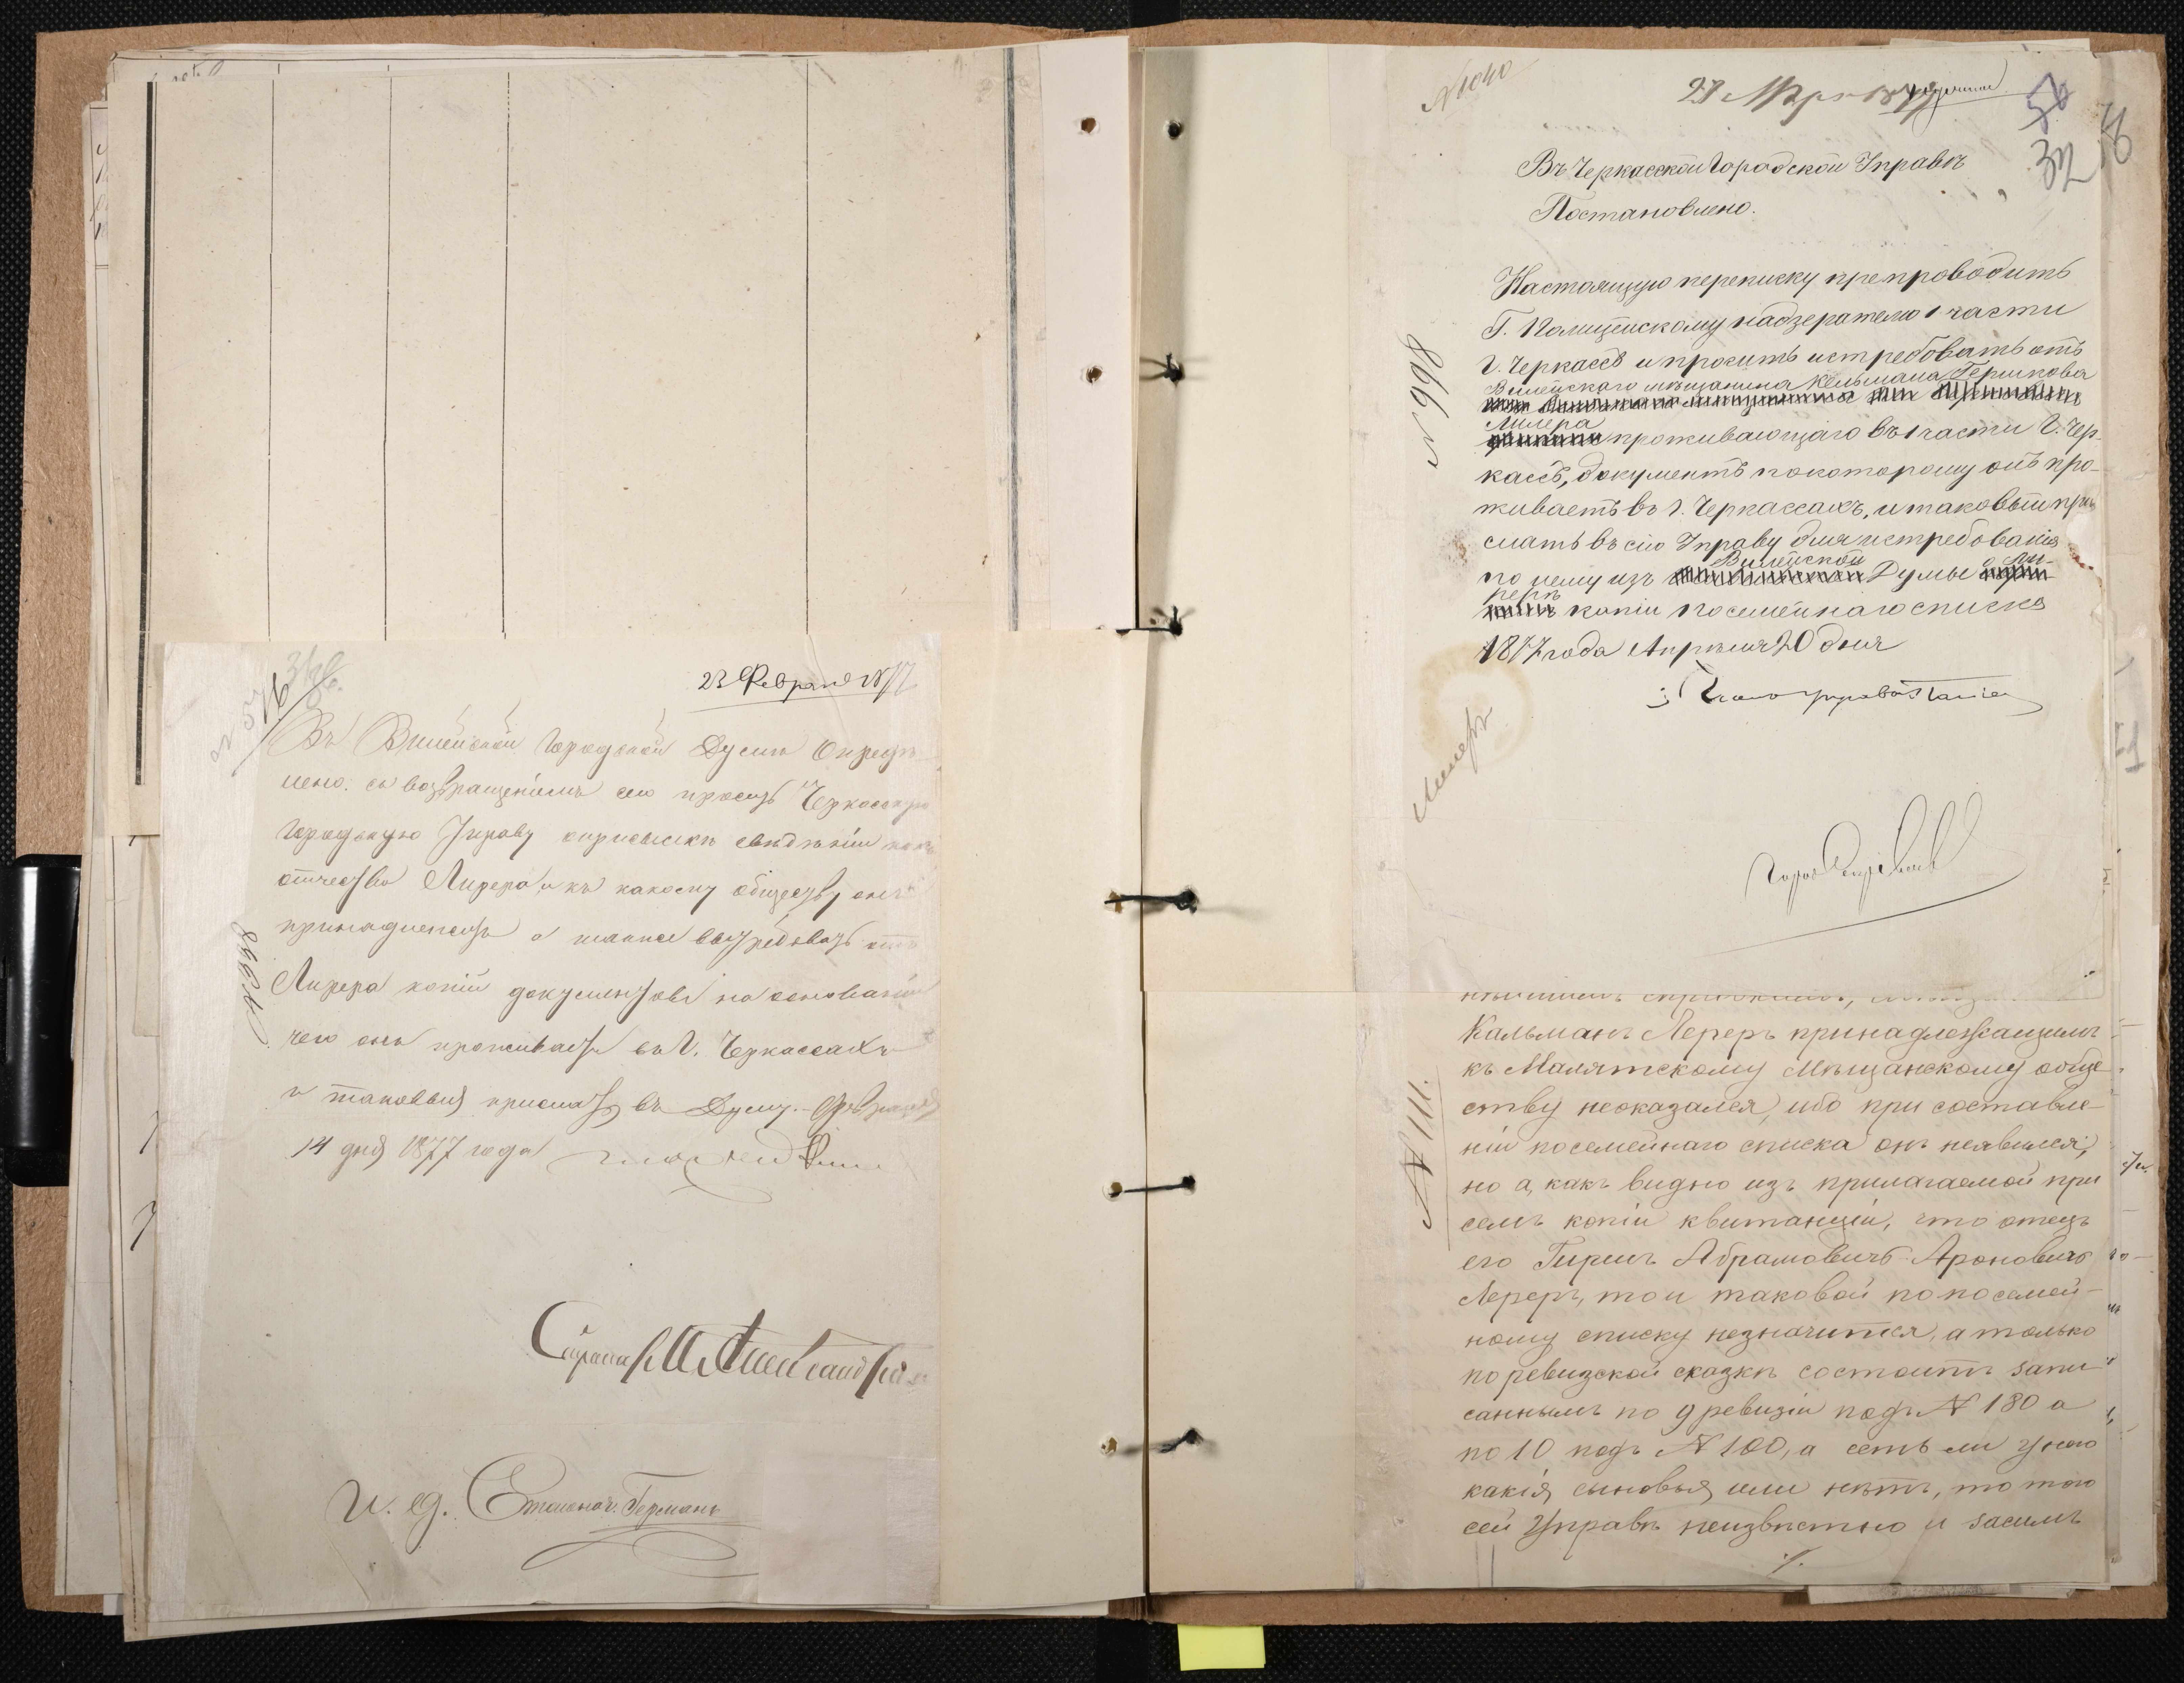 23 Февраля 1877
Въ Вилейской Городской Думѣ Опредѣ-
лено: съ возвращеніемъ сего просить Черкасскую
Городскую Управу о присылкѣ свѣдѣній какъ
отчество Лирера, и къ какому обществу онъ
принадлежитъ а также вытребовать отъ
Лирера копіи документовъ на основаніи
чего онъ проживаетъ въ Г. Черкассахъ
и таковыя прислать въ Думу. Февраля
14 дня 1877 года
N 998
И. д.
N 1040
27
Въ Черкасской Городской Управѣ
Постановлено.
Настоящую переписку препроводить
Г. Полицейскому надзерателю 1 части
Г. Черкассъ и просить истребовать отъ
Вилейскаго мѣщанина Кельмана Гершкова
Лирера
проживающаго въ 1 части Г. Чер-
кассъ, документъ покоторому онъ про-
живаетъ въ Г. Черкассахъ, и таковый при
слать въ сію Управу для истребованія
по нему изъ Вилейской Думы о Ли-
рерѣ копіи посемейнаго списка
1877 года Апрѣля 20 дня
N 998
Лирер
37
Кальманъ Лереръ принадлежащимъ
къ Малятскому Мѣщанскому обще-
ству неоказался, ибо при составле-
ніи посемейнаго списка онъ неявился,
но а, какъ видно изъ прилагаемой при
семъ копіи квитанціи, что отецъ
его Гиршъ Абрамовичъ-Ароновичъ
Лереръ, то и таковой по посемей-
ному списку незначится, а только
по ревизской сказкѣ состоитъ запи-
саннымъ по 9 ревизіи подъ N 180 а
по 10 подъ N 100, а есть ли у него
какія сыновья или нѣтъ, то того
сей Управѣ неизвѣстно и засимъ
N 111.